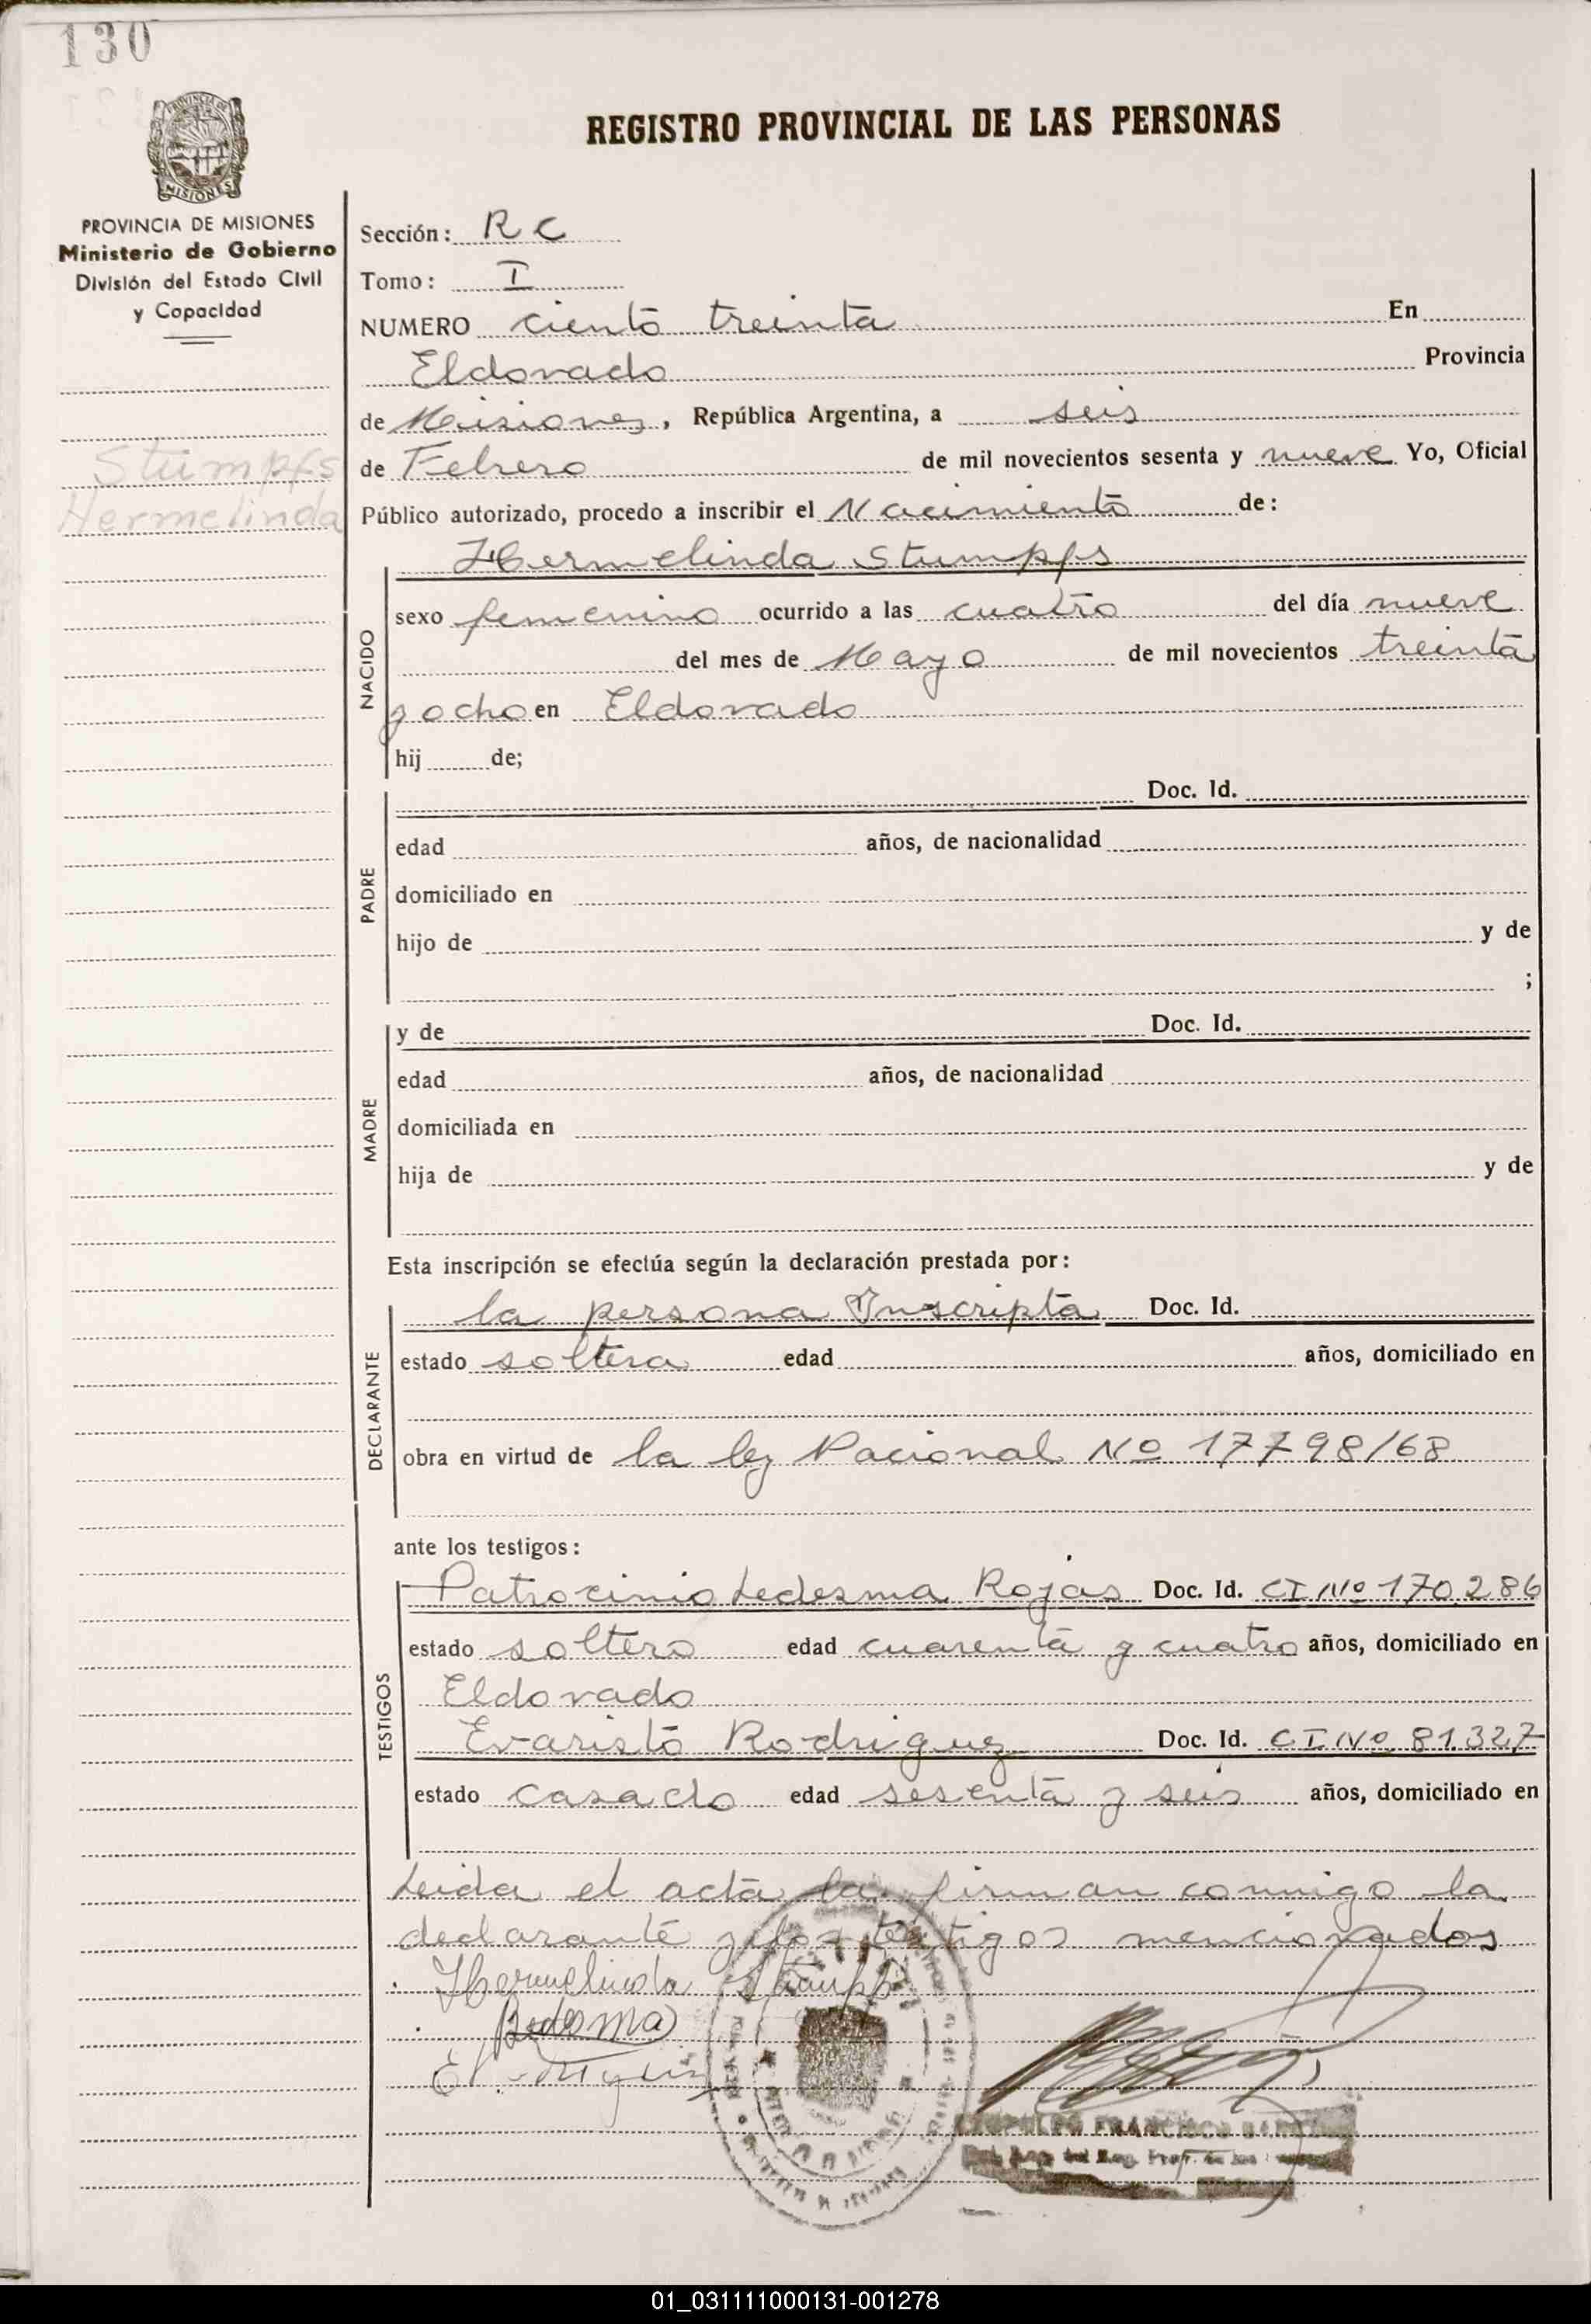 130
PROVINCIA DE
MISIONES
REGISTRO PROVINCIAL DE LAS PERSONAS
PROVINCIA DE MISIONES
Ministerio de Gobierno
División del Estado Civil
y Capacidad
Stumpfs
Hermelinda
Sección: R C
Tomo: I
NUMERO ciento treinta En
Eldorado Provincia
de Misiones, República Argentina, a seis
de Febrero de mil novecientos sesenta y nueve Yo, Oficial
Público autorizado, procedo a inscribir el Nacimiento de:
Hermelinda Stumpfs
NACIDO
sexo femenino ocurrido a las cuatro del día nueve
del mes de Mayo de mil novecientos treinta
y ocho en Eldorado
hij de;
PADRE
Doc. Id.
edad años, de nacionalidad
domiciliado en
hijo de y de
;
MADRE
y de Doc. Id.
edad años, de nacionalidad
domiciliada en
hija de y de
Esta inscripción se efectúa según la declaración prestada por:
DECLARANTE
la persona Inscripta Doc. Id.
estado soltera edad años, domiciliado en
obra en virtud de la ley Nacional Nº 17798/68
ante los testigos:
TESTIGOS
Patrocinio Ledesma Rojas Doc. Id. CI Nº 170.286
estado soltero edad cuarenta y cuatro años, domiciliado en
Eldorado
Evaristo Rodriguez Doc. Id. CI Nº 81.327
estado casado edad sesenta y seis años, domiciliado en
Leida el acta la firman conmigo la
declarante y los testigos mencionados
Hermelinda Stumpfs
FRANCISCO
01_031111000131-001278